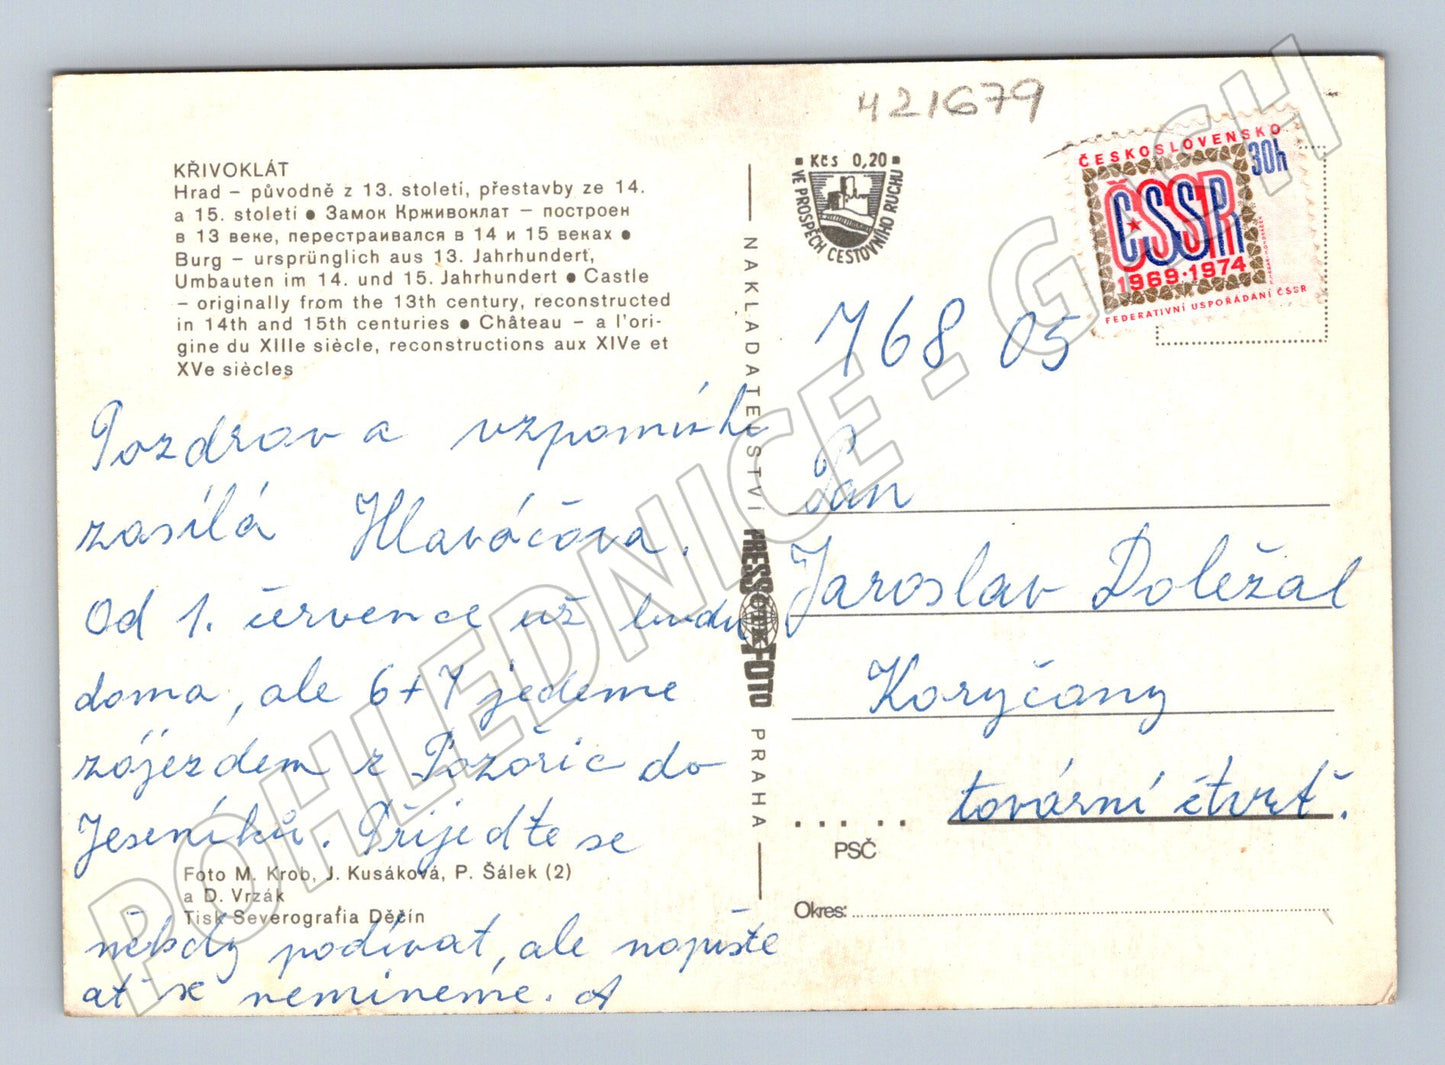 421679
KŘIVOKLÁT
Hrad – původně z 13. století, přestavby ze 14.
a 15. století ● Замок Крживоклат – построен
в 13 веке, перестраивался в 14 и 15 веках ●
Burg – ursprünglich aus 13. Jahrhundert,
Umbauten im 14. und 15. Jahrhundert ● Castle
– originally from the 13th century, reconstructed
in 14th and 15th centuries ● Château – a l'ori-
gine du XIIIe siècle, reconstructions aux XIVe et
XVe siècles
Pozdrav a vzpomínku
zasílá Hlaváčova.
Od 1. července už budu
doma, ale 6+7 jedeme
zájezdem z Pozořic do
Jeseníků. Přijeďte se
Foto M. Krob, J. Kusáková, P. Šálek (2)
a D. Vrzák
Tisk Severografia Děčín
někdy podívat, ale napište
ať se nemineme. A
NAKLADATELSTVÍ
PRESSFOTO
PRAHA
Kčs 0,20
VE PROSPĚCH CESTOVNÍHO RUCHU
ČESKOSLOVENSKO
30h
ČSSR
1969·1974
FEDERATIVNÍ USPOŘÁDÁNÍ ČSSR
768 05
Pan
Jaroslav Doležal
Koryčany
tovární čtvrť.
PSČ
Okres:
POHLEDNICE - GASH